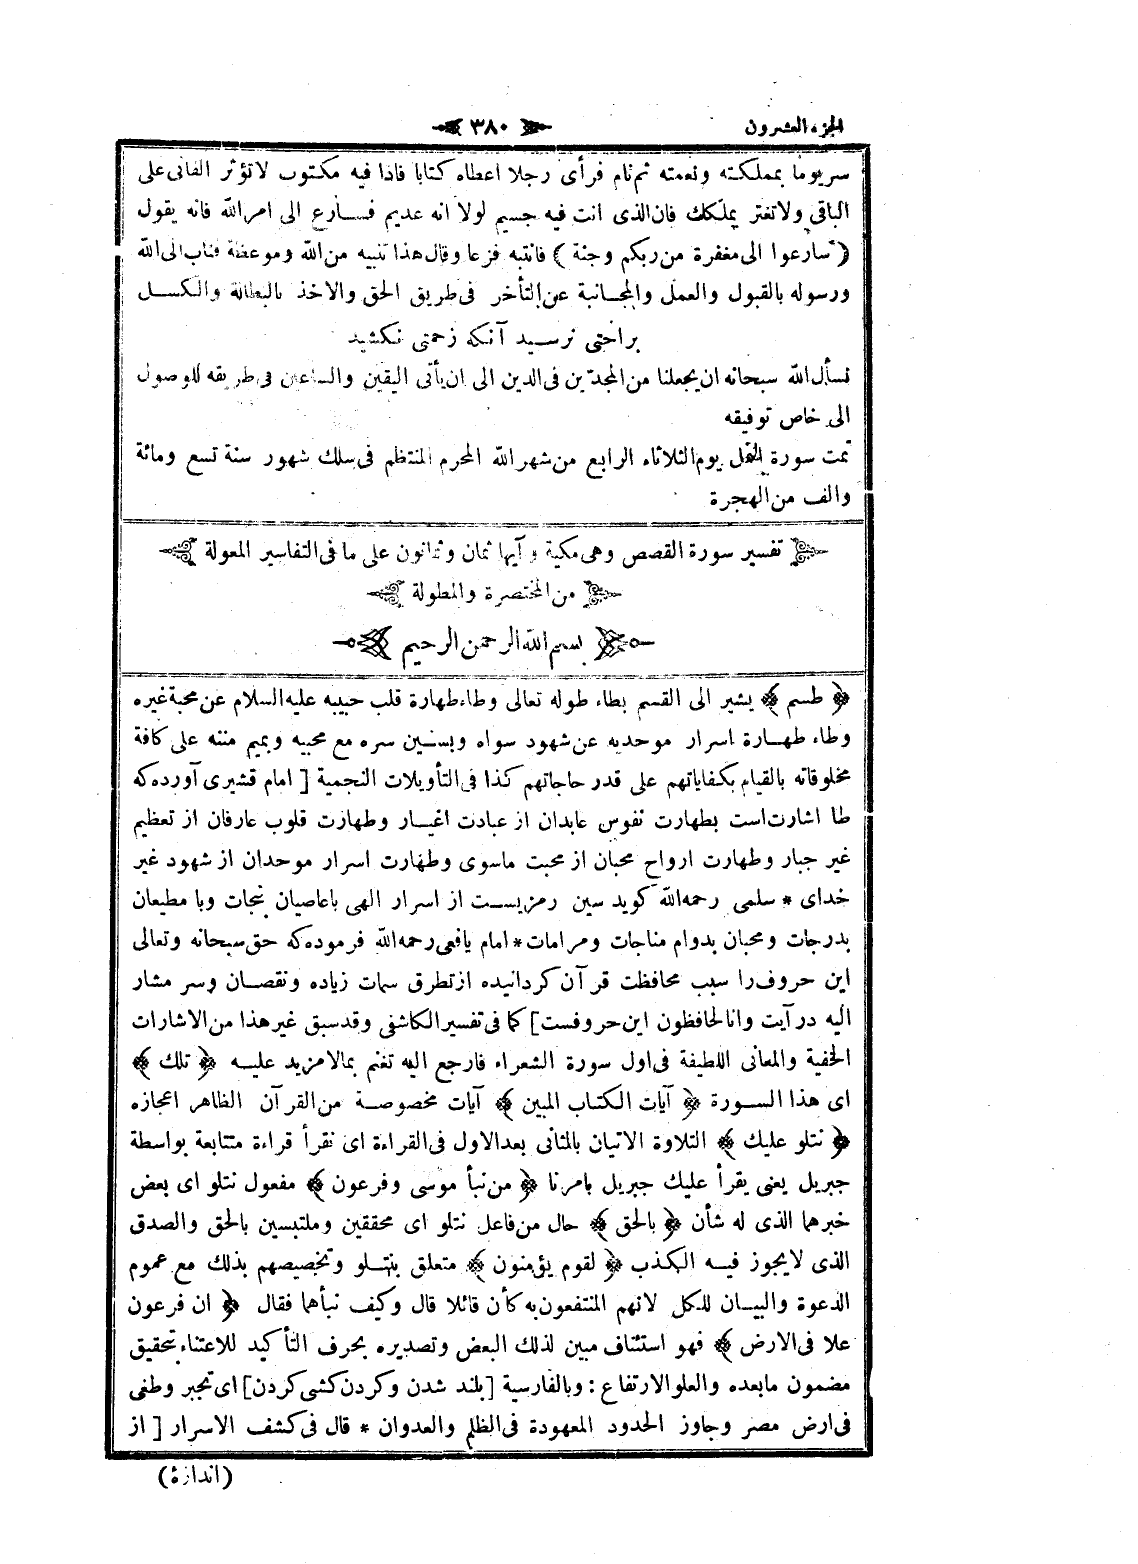 الجزء العشرون
٣٨٠
سر يوما بمملكته ونعمته ثم نام فرأى رجلا اعطاه كتابا فاذا فيه مكتوب لا تؤثر الفانى على
الباقى ولا تغتر بملكك فان الذى انت فيه جسيم لولا انه عديم فسارع الى امر الله فانه يقول
(سارعوا الى مغفرة من ربكم وجنة) فانتبه فزعا وقال هذا تنبيه من الله وموعظة فتاب الى الله
ورسوله بالقبول والعمل والمجانبة عن التأخر فى طريق الحق والاخذ بالبطالة والكسل
براحتى نرسيد آنكه زحمتى نكشيد
نسأل الله سبحانه ان يجعلنا من المجدّين فى الدين الى ان يأتى اليقين والساعين فى طريقه للوصول
الى خاص توفيقه
تمت سورة النمل يوم الثلاثاء الرابع من شهر الله المحرم المنتظم فى سلك شهور سنة تسع ومائة
والف من الهجرة
تفسير سورة القصص وهى مكية وآيها ثمان وثمانون على ما فى التفاسير المعولة
من المختصرة والمطولة
بسم الله الرحمن الرحيم
﴿ طسم ﴾ يشير الى القسم بطاء طوله تعالى وطاء طهارة قلب حبيبه عليه السلام عن محبة غيره
وطاء طهارة اسرار موحديه عن شهود سواه وبسين سره مع محبيه وبميم مننه على كافة
مخلوقاته بالقيام بكفاياتهم على قدر حاجاتهم كذا فى التأويلات النجمية [ امام قشيرى آورده كه
طا اشارت است بطهارت نفوس عابدان از عبادت اغيار وطهارت قلوب عارفان از تعظيم
غير جبار وطهارت ارواح محبان از محبت ماسوى وطهارت اسرار موحدان از شهود غير
خداى * سلمى رحمه الله كويد سين رمزيست از اسرار الهى با عاصيان بنجات وبا مطيعان
بدرجات ومحبان بدوام مناجات ومرامات* امام يافعى رحمه الله فرموده كه حق سبحانه وتعالى
اين حروف را سبب محافظت قرآن كردانيده از تطرق سمات زياده ونقصان وسر مشار
اليه در آيت وانا لحافظون اين حروفست] كما فى تفسير الكاشفى وقد سبق غير هذا من الاشارات
الخفية والمعانى اللطيفة فى اول سورة الشعراء فارجع اليه تغنم بما لا مزيد عليه ﴿ تلك ﴾
اى هذا السورة ﴿ آيات الكتاب المبين ﴾ آيات مخصوصة من القرآن الظاهر اعجازه
﴿ نتلو عليك ﴾ التلاوة الاتيان بالثانى بعد الاول فى القراءة اى نقرأ قراءة متتابعة بواسطة
جبريل يعنى يقرأ عليك جبريل بامرنا ﴿ من نبأ موسى وفرعون ﴾ مفعول نتلو اى بعض
خبرهما الذى له شأن ﴿ بالحق ﴾ حال من فاعل نتلو اى محققين وملتبسين بالحق والصدق
الذى لا يجوز فيه الكذب ﴿ لقوم يؤمنون ﴾ متعلق بنتلو وتخصيصهم بذلك مع عموم
الدعوة والبيان للكل لانهم المنتفعون به كأن قائلا قال وكيف نبأهما فقال ﴿ ان فرعون
علا فى الارض ﴾ فهو استئناف مبين لذلك البعض وتصديره بحرف التأكيد للاعتناء بتحقيق
مضمون ما بعده والعلو الارتفاع : وبالفارسية [ بلند شدن وكردن كشى كردن] اى تجبر وطغى
فى ارض مصر وجاوز الحدود المعهودة فى الظلم والعدوان * قال فى كشف الاسرار [ از
(اندازۀ)